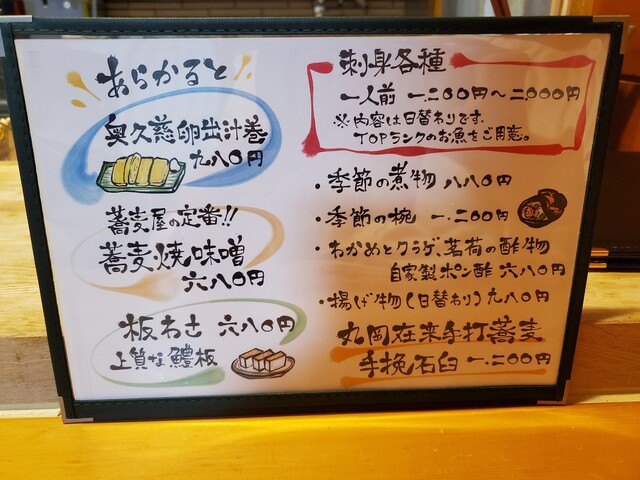 あらかると
奥久慈卵出汁巻
九八〇円
蕎麦屋の定番!!
蕎麦焼味噌
六八〇円
板わさ 六八〇円
上質な鱧板
刺身各種
一人前 一.二〇〇円〜二.〇〇〇円
※内容は日替わりです.
TOPランクのお魚をご用意。
・季節の煮物 八八〇円
・季節の椀 一.二〇〇円
・わかめとクラゲ、茗荷の酢物
自家製ポン酢 六八〇円
・揚げ物(日替わり)九八〇円
丸岡在来手打蕎麦
手挽石臼 一.二〇〇円